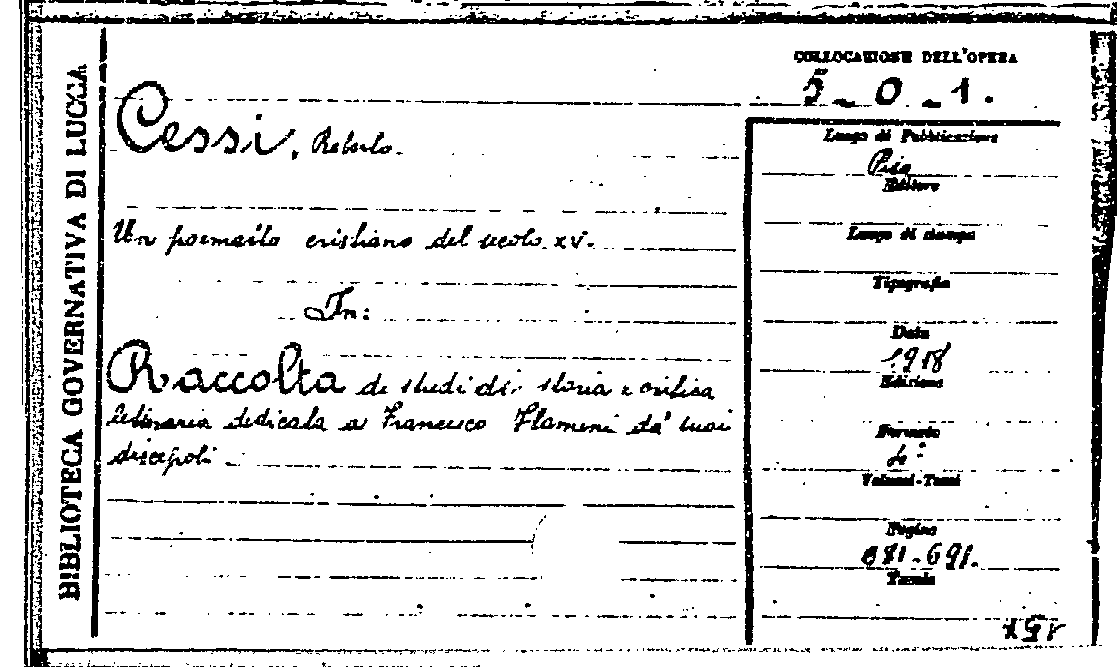 BIBLIOTECA GOVERNATIVA DI LUCCA
COLLOCAZIONE DELL'OPERA
5-0-1.
Cessi, Roberto.
Un poemetto cristiano del secolo XV.
In:
Raccolta di studi di storia e critica
letteraria dedicata a Francesco Flamini da' suoi
discepoli
Luogo di Pubblicazione
Pisa
Editore
Luogo di stampa
Tipografia
Data
1918
Edizione
Formato
Volumi-Tomi
Pagine
Tavole